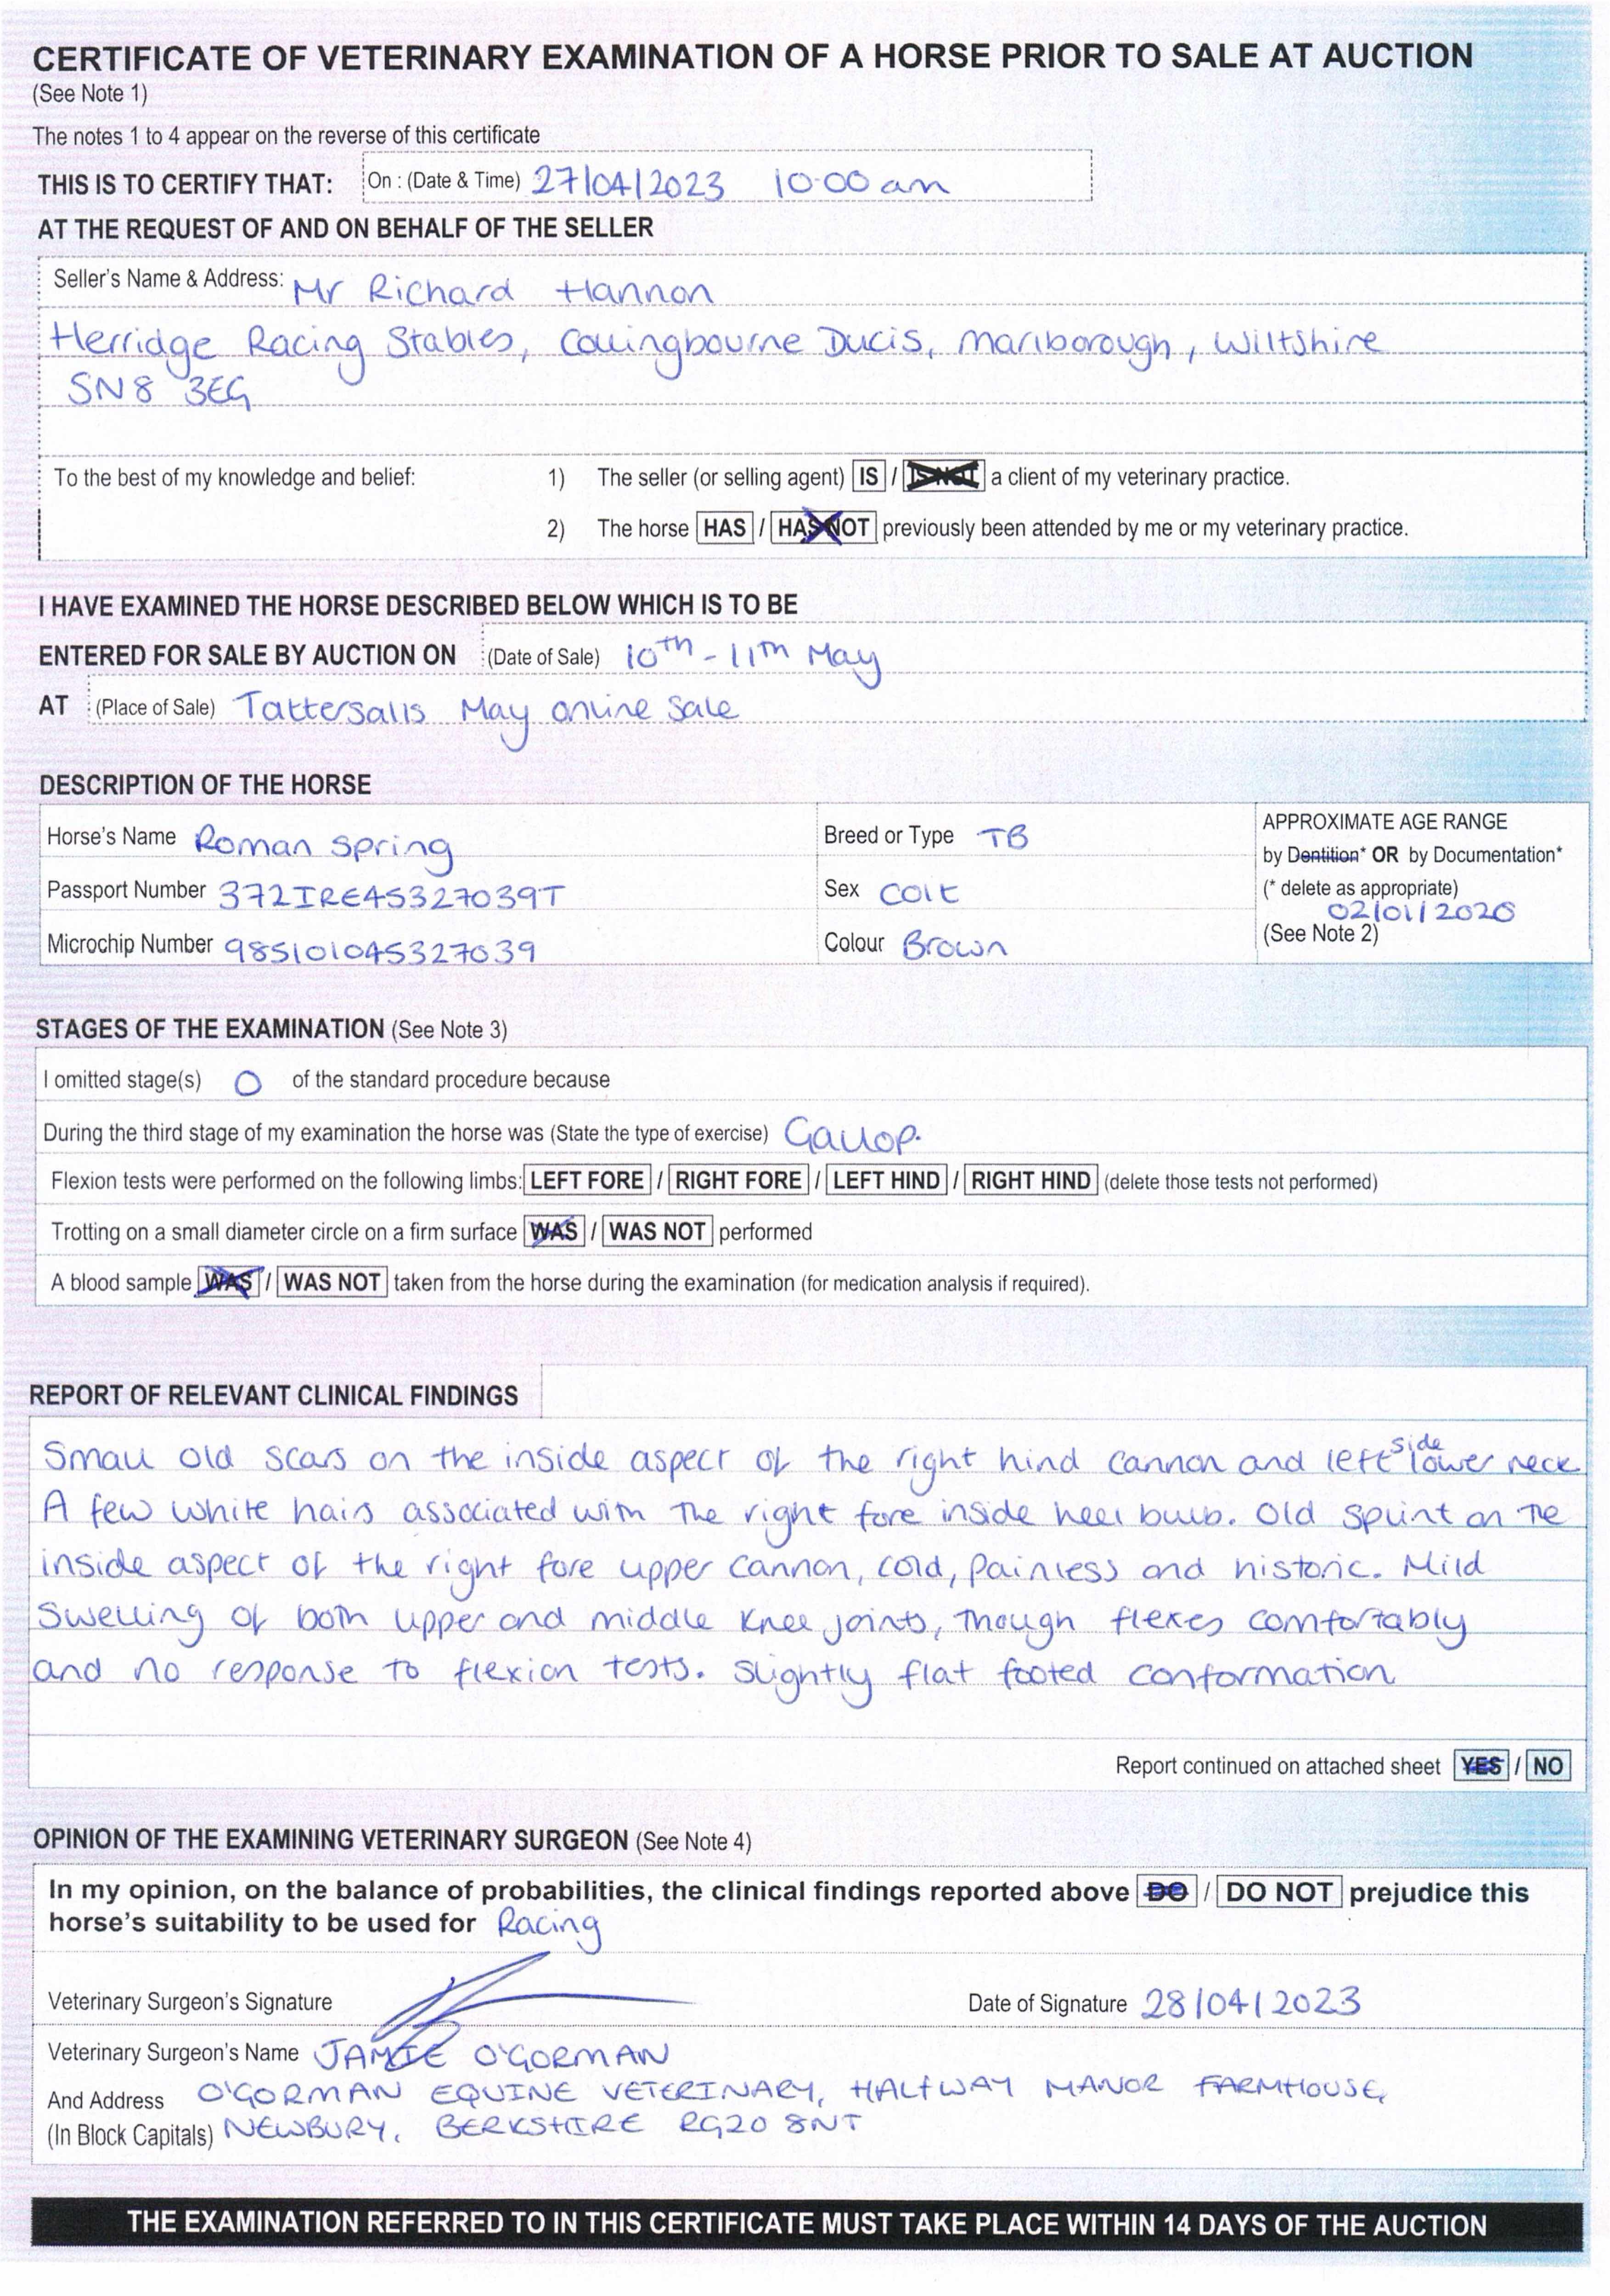 CERTIFICATE OF VETERINARY EXAMINATION OF A HORSE PRIOR TO SALE AT AUCTION
(See Note 1)
The notes 1 to 4 appear on the reverse of this certificate
THIS IS TO CERTIFY THAT: On : (Date & Time) 27/04/2023 10:00 am
AT THE REQUEST OF AND ON BEHALF OF THE SELLER
Seller's Name & Address: Mr Richard Hannon
Herridge Racing Stables, Collingbourne Ducis, Marlborough, Wiltshire
SN8 3EG
To the best of my knowledge and belief: 1) The seller (or selling agent) IS / IS NOT a client of my veterinary practice.
2) The horse HAS / HAS NOT previously been attended by me or my veterinary practice.
I HAVE EXAMINED THE HORSE DESCRIBED BELOW WHICH IS TO BE
ENTERED FOR SALE BY AUCTION ON (Date of Sale) 10th - 11th May
AT (Place of Sale) Tattersalls May online Sale
DESCRIPTION OF THE HORSE
Horse's Name Roman Spring Breed or Type TB APPROXIMATE AGE RANGE
by Dentition* OR by Documentation*
Passport Number 372IRE45327039T Sex Colt (* delete as appropriate)
02/01/2020
Microchip Number 985101045327039 Colour Brown (See Note 2)
STAGES OF THE EXAMINATION (See Note 3)
I omitted stage(s) O of the standard procedure because
During the third stage of my examination the horse was (State the type of exercise) Gallop.
Flexion tests were performed on the following limbs: LEFT FORE / RIGHT FORE / LEFT HIND / RIGHT HIND (delete those tests not performed)
Trotting on a small diameter circle on a firm surface WAS / WAS NOT performed
A blood sample WAS / WAS NOT taken from the horse during the examination (for medication analysis if required).
REPORT OF RELEVANT CLINICAL FINDINGS
Small old scars on the inside aspect of the right hind cannon and left side lower neck
A few white hairs associated with the right fore inside heel bulb. Old splint on the
inside aspect of the right fore upper cannon, cold, painless and historic. Mild
swelling of both upper and middle knee joints, though flexes comfortably
and no response to flexion tests. Slightly flat footed conformation
Report continued on attached sheet YES / NO
OPINION OF THE EXAMINING VETERINARY SURGEON (See Note 4)
In my opinion, on the balance of probabilities, the clinical findings reported above DO / DO NOT prejudice this
horse's suitability to be used for Racing
Veterinary Surgeon's Signature Date of Signature 28/04/2023
Veterinary Surgeon's Name JAMIE O'GORMAN
And Address O'GORMAN EQUINE VETERINARY, HALFWAY MANOR FARMHOUSE,
(In Block Capitals) NEWBURY, BERKSHIRE RG20 8NT
THE EXAMINATION REFERRED TO IN THIS CERTIFICATE MUST TAKE PLACE WITHIN 14 DAYS OF THE AUCTION